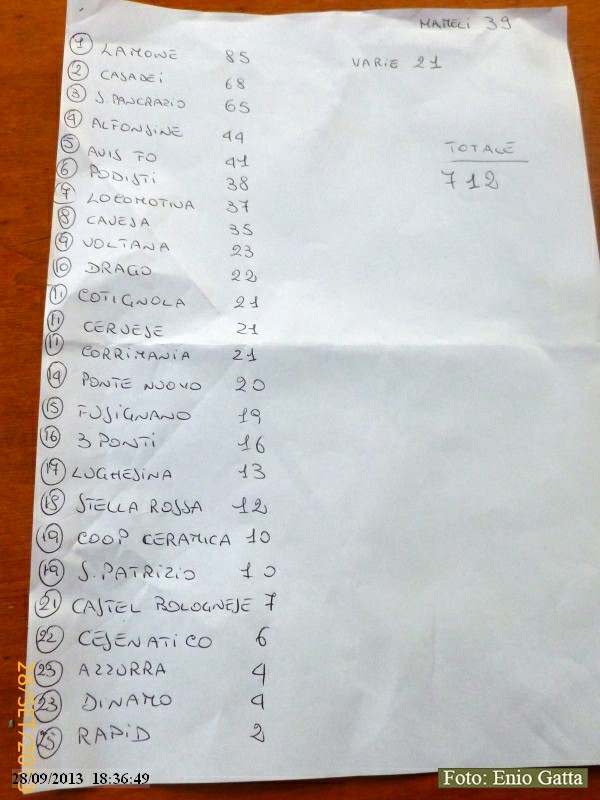 MAMELI 39
1 LAMONE 85
VARIE 21
2 CASADEI 68
3 S.PANCRAZIO 65
4 ALFONSINE 44
TOTALE
5 AVIS FO 41
712
6 PODISTI 38
7 LOCOMOTIVA 37
8 CAVEJA 35
9 VOLTANA 23
10 DRAGO 22
11 COTIGNOLA 21
11 CERVESE 21
11 CORRIMANIA 21
14 PONTE NUOVO 20
15 FUSIGNANO 19
16 3 PONTI 16
17 LUGHESINA 13
18 STELLA ROSSA 12
19 COOP CERAMICA 10
19 S.PATRIZIO 10
21 CASTEL BOLOGNESE 7
22 CESENATICO 6
23 AZZURRA 4
23 DINAMO 4
25 RAPID 2
28/09/2013 18:36:49
Foto: Enio Gatta